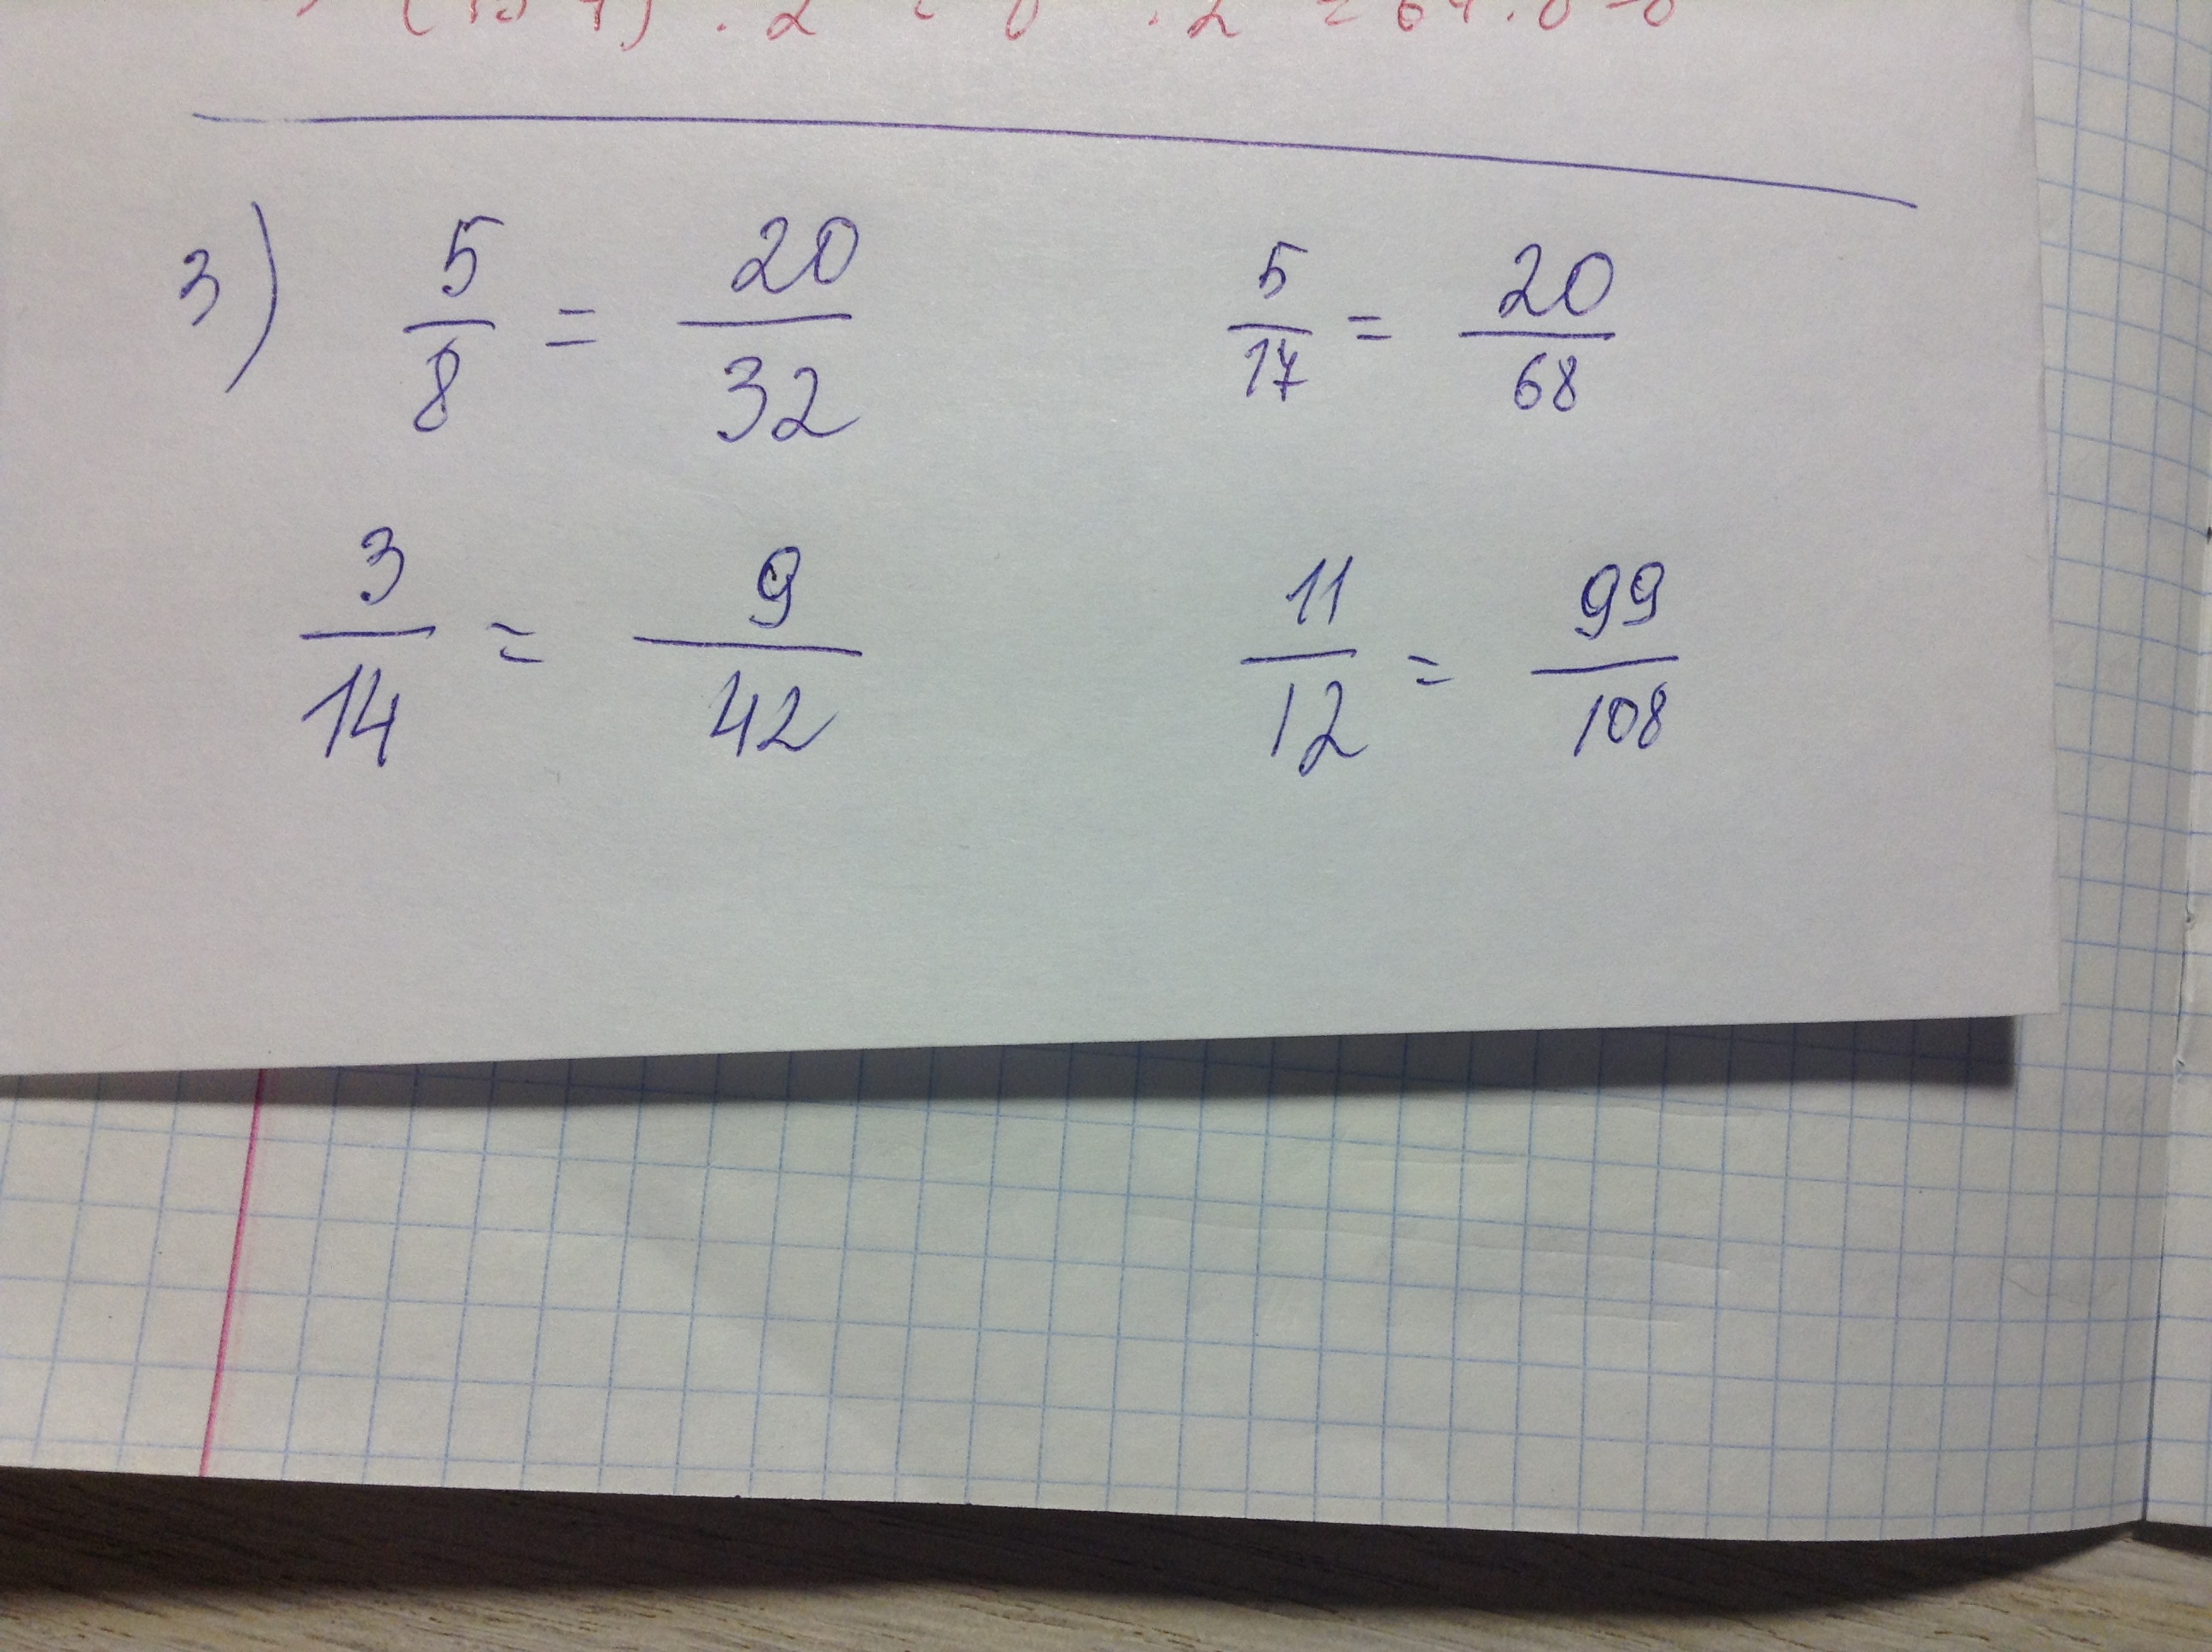 3) 5/8 = 20/32 5/17 = 20/68
3/14 = 9/42 11/12 = 99/108